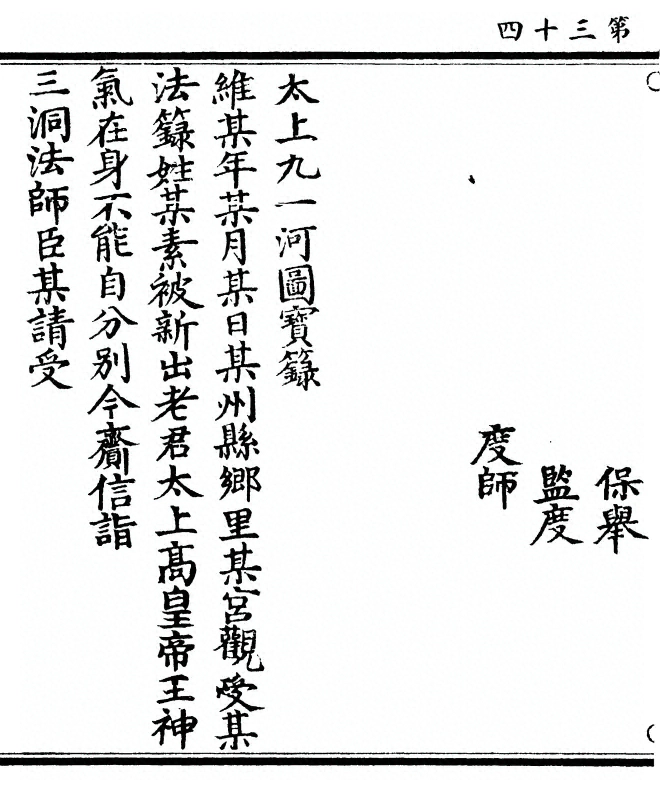 第三十四
保舉
監度
度師
太上九一河圖寶籙
維某年某月某日某州縣鄉里某宮觀受某
法籙姓某素被新出老君太上高皇帝王神
氣在身不能自分別今齎信詣
三洞法師臣某請受